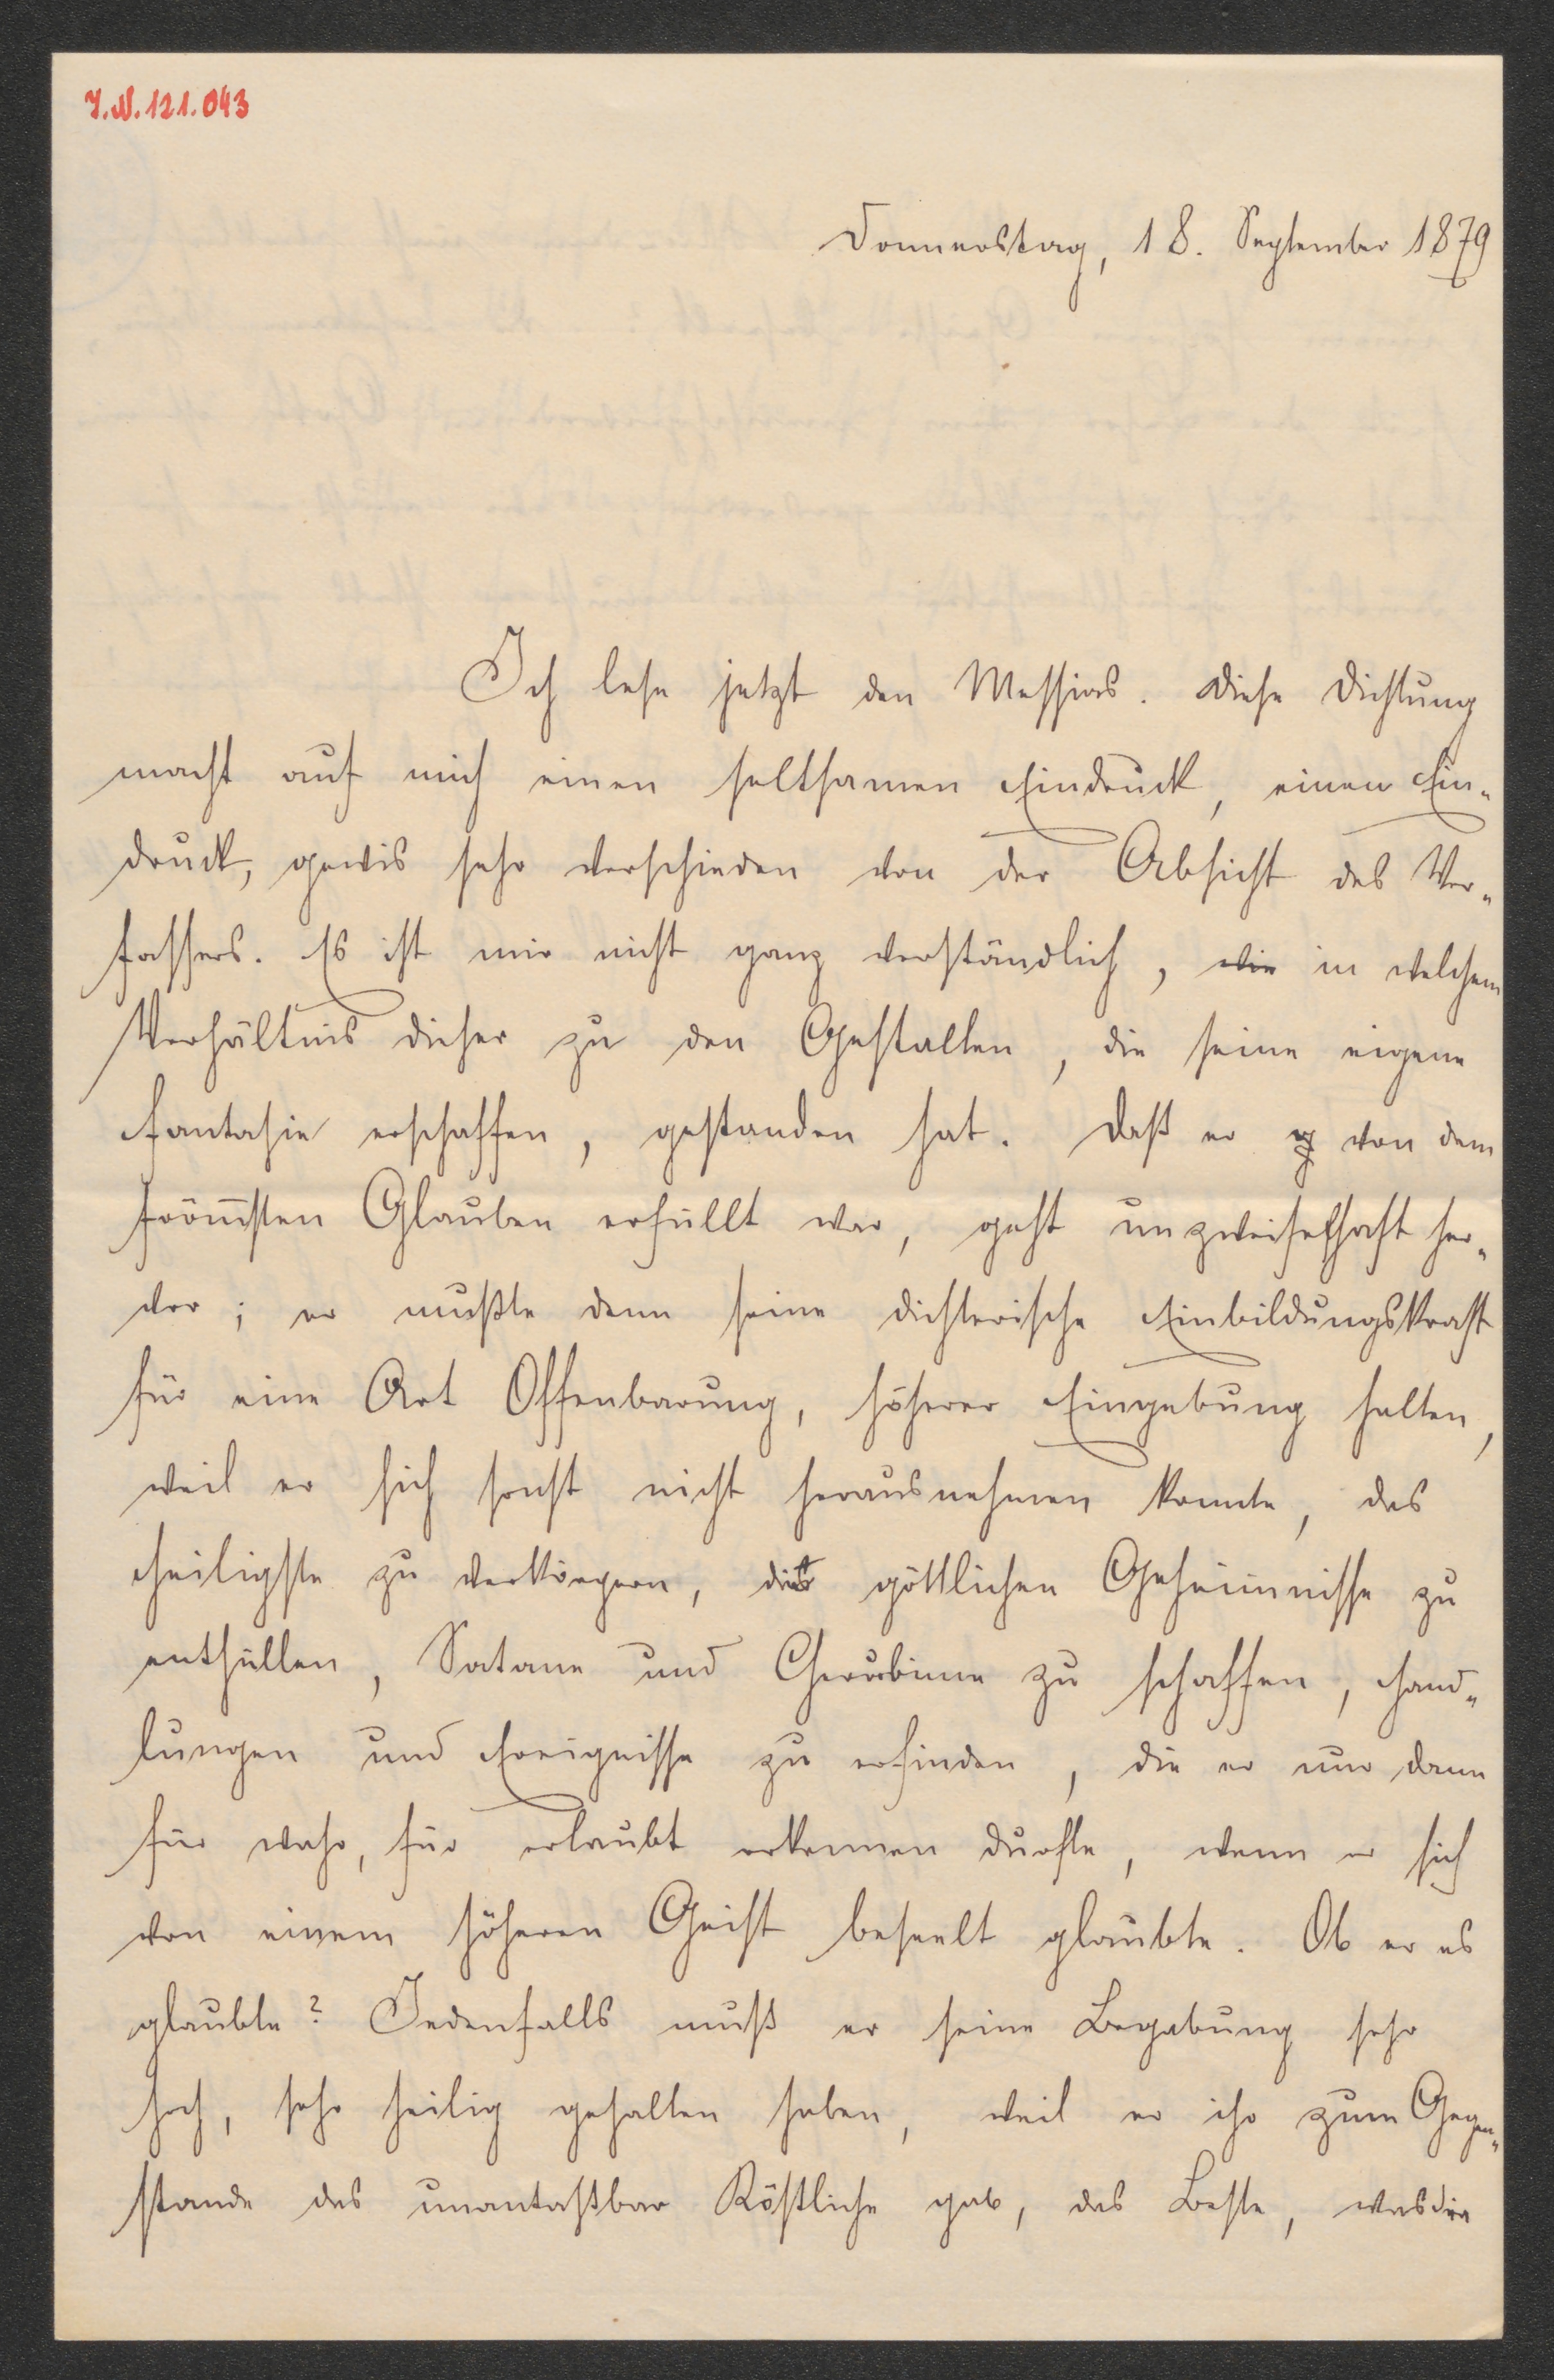 I.N. 121.043
Donnerstag, 18. September 1879
Ich lese jetzt den Messias. Diese Dichtung
macht auf mich einen seltsamen Eindruck, einen Ein-
druck, gewis sehr verschieden von der Absicht des Ver-
fassers. Es ist mir nicht ganz verständlich, wie in welchem
Verhältnis dieser zu den Gestalten, die seine eigene
Fantasie erschaffen, gestanden hat. Daß er g von dem
frömsten Glauben erfüllt war, geht unzweifelhaft her-
vor; er mußte denn seine dichterische Einbildungskraft
für eine Art Offenbarung, höherer Eingebung halten,
weil er sich sonst nicht herausnehmen konnte, das
Heiligste zu verkörpern, die göttlichen Geheimnisse zu
enthüllen, Satane und Cherubinne zu schaffen, Hand-
lungen und Ereignisse zu erfinden, die er nur dann
für wahr, für erlaubt erkennen durfte, wenn er sich
von einem höheren Geist beseelt glaubte. Ob er es
glaubte? Jedenfalls muß er seine Begabung sehr
hoch, sehr heilig gehalten haben, weil er ihr zum Gegen-
stande das unantastbar Köstliche gab, das Beste, was die